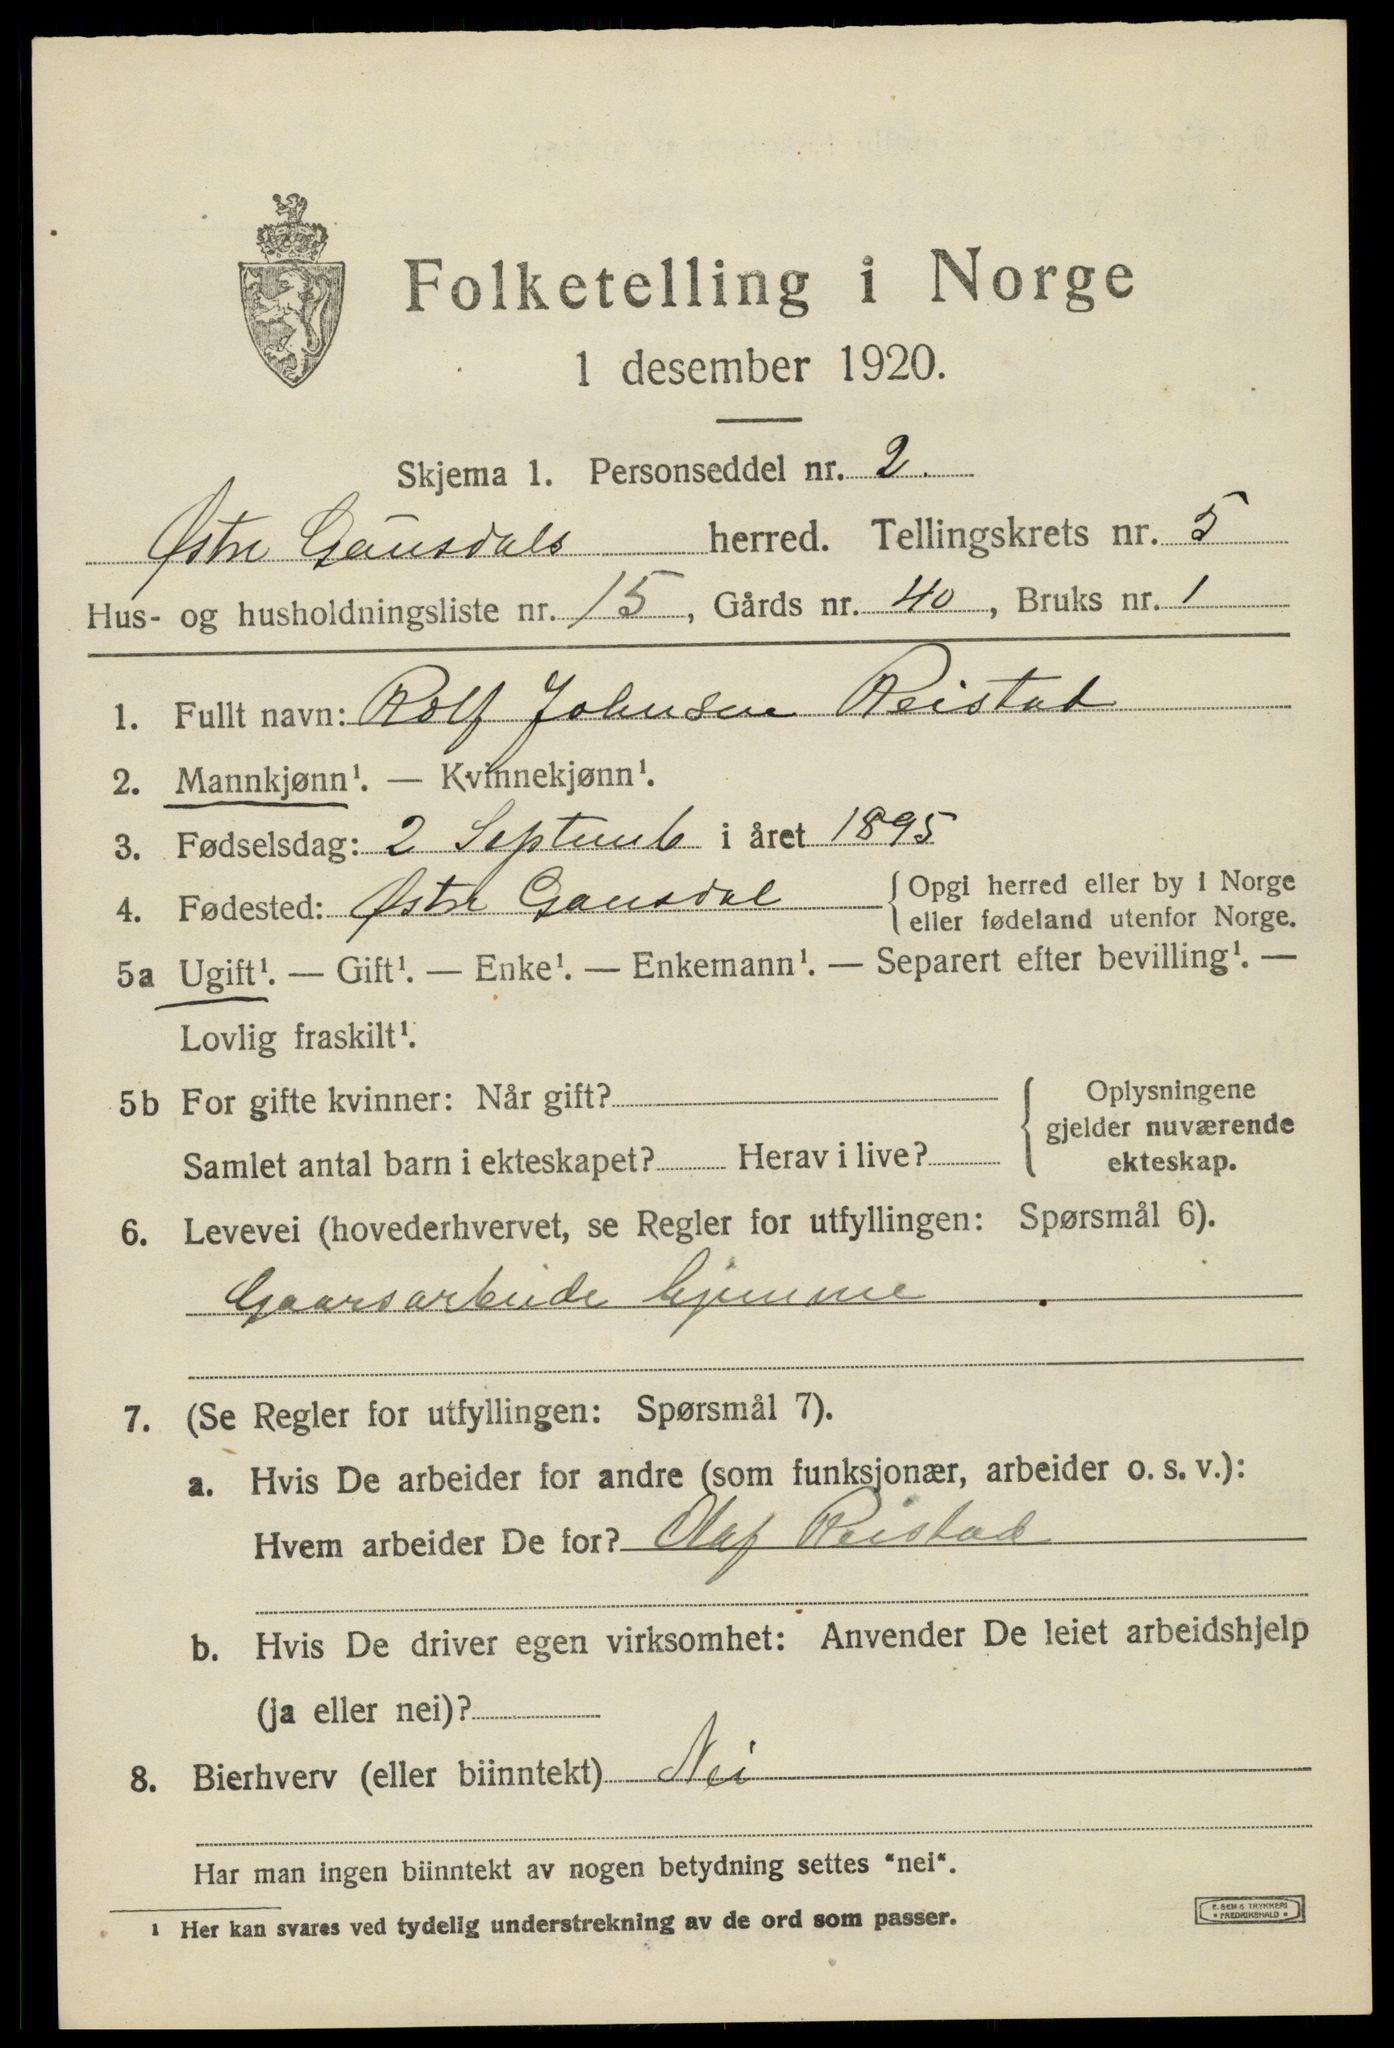 Folketelling i Norge
1 desember 1920.
Skjema 1. Personseddel nr. 2.
Østre Gausdals herred. Tellingskrets nr. 5
Hus- og husholdningsliste nr. 15, Gårds nr. 40, Bruks nr. 1
1. Fullt navn: Rolf Johnsen Reistad
2. Mannkjønn¹. — Kvinnekjønn¹.
3. Fødselsdag: 2 Septemb i året 1895
4. Fødested: Østre Gausdal { Opgi herred eller by i Norge
eller fødeland utenfor Norge.
5a Ugift¹. — Gift¹. — Enke¹. — Enkemann¹. — Separert efter bevilling¹. —
Lovlig fraskilt¹.
5b For gifte kvinner: Når gift? { Oplysningene
gjelder nuværende
Samlet antal barn i ekteskapet? Herav i live? ekteskap.
6. Levevei (hovederhvervet, se Regler for utfyllingen: Spørsmål 6).
Gaarsarbeide hjemme
7. (Se Regler for utfyllingen: Spørsmål 7).
a. Hvis De arbeider for andre (som funksjonær, arbeider o. s. v.):
Hvem arbeider De for? Olaf Reistad
b. Hvis De driver egen virksomhet: Anvender De leiet arbeidshjelp
(ja eller nei)?
8. Bierhverv (eller biinntekt) Nei
Har man ingen biinntekt av nogen betydning settes "nei".
¹ Her kan svares ved tydelig understrekning av de ord som passer.
E. SEM'S TRYKKERI
• FREDRIKSHALD •